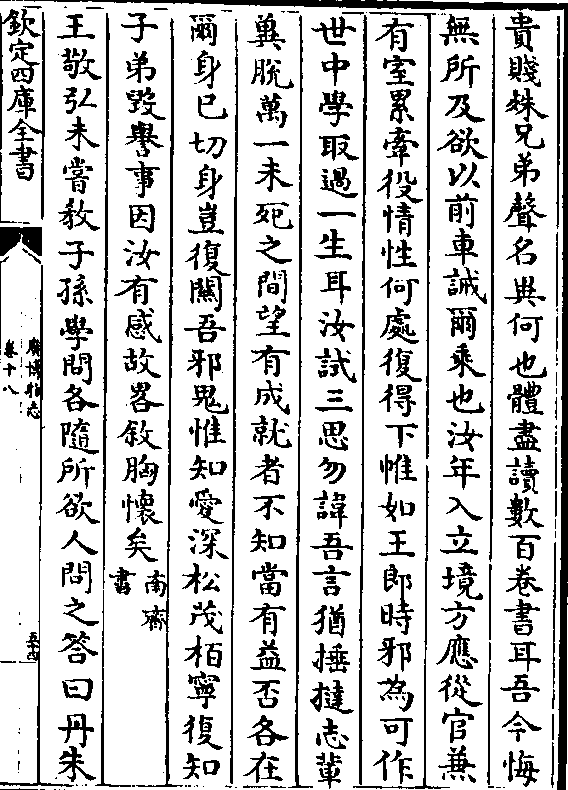 貴賤殊兄弟聲名異何也體盡讀數百卷書耳吾今悔
無所及欲以前車誡爾乘也汝年入立境方應從官兼
有室累牽役情性何處復得下帷如王郎時邪為可作
世中學取過一生耳汝試三思勿諱吾言猶捶撻志輩
冀脫萬一未死之間望有成就者不知當有益否各在
爾身已切身豈復關吾邪鬼惟知愛深松茂栢寧復知
子弟毀譽事因汝有感故畧敘胸懷矣南齊
書
王敬弘未嘗教子孫學問各隨所欲人問之答曰丹朱
欽定四庫全書
廣博物志
卷十八
五十四